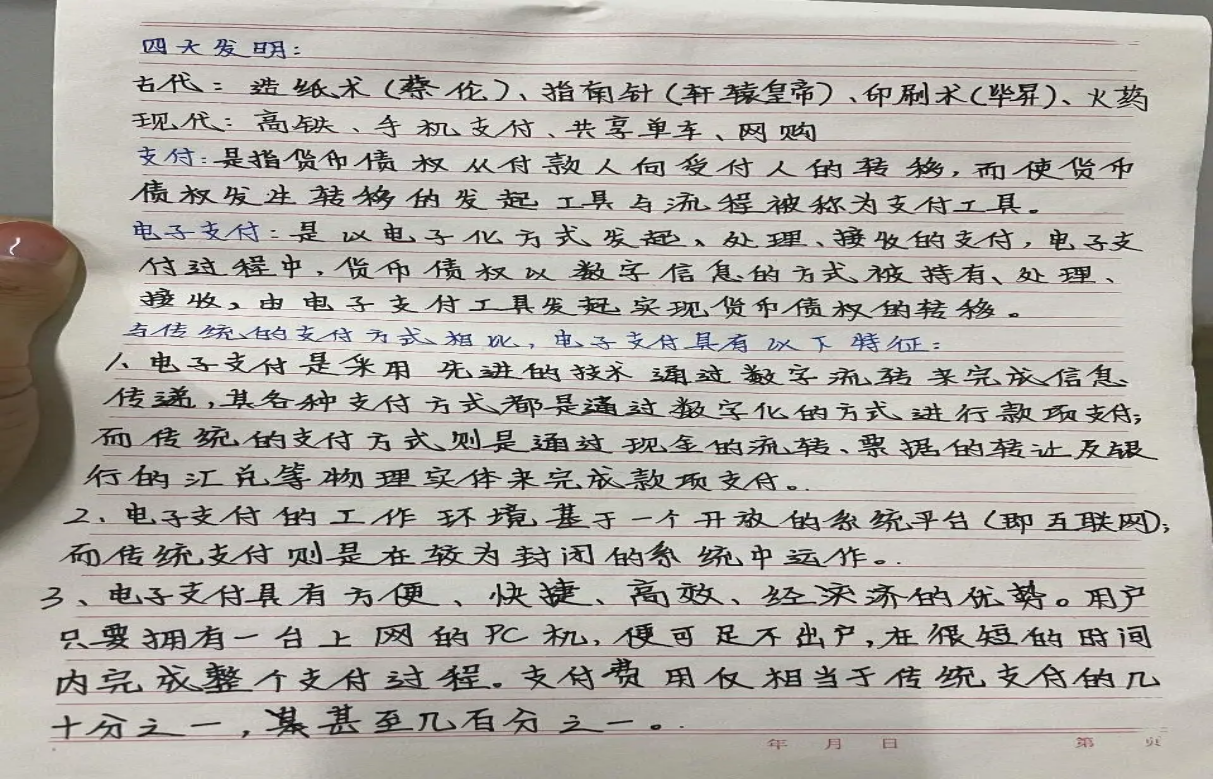 四大发明：
古代：造纸术(蔡伦)、指南针(轩辕皇帝)、印刷术(毕昇)、火药
现代：高铁、手机支付、共享单车、网购
支付：是指货币债权从付款人向受付人的转移，而使货币
债权发生转移的发起工具与流程被称为支付工具。
电子支付：是以电子化方式发起、处理、接收的支付，电子支
付过程中，货币债权以数字信息的方式被持有、处理、
接收，由电子支付工具发起实现货币债权的转移。
与传统的支付方式相比，电子支付具有以下特征：
1、电子支付是采用先进的技术通过数字流转来完成信息
传递，其各种支付方式都是通过数字化的方式进行款项支付；
而传统的支付方式则是通过现金的流转、票据的转让及银
行的汇兑等物理实体来完成款项支付。
2、电子支付的工作环境基于一个开放的系统平台(即互联网)；
而传统支付则是在较为封闭的系统中运作。
3、电子支付具有方便、快捷、高效、经济的优势。用户
只要拥有一台上网的PC机，便可足不出户，在很短的时间
内完成整个支付过程。支付费用仅相当于传统支付的几
十分之一，甚至几百分之一。
年 月 日 第 页